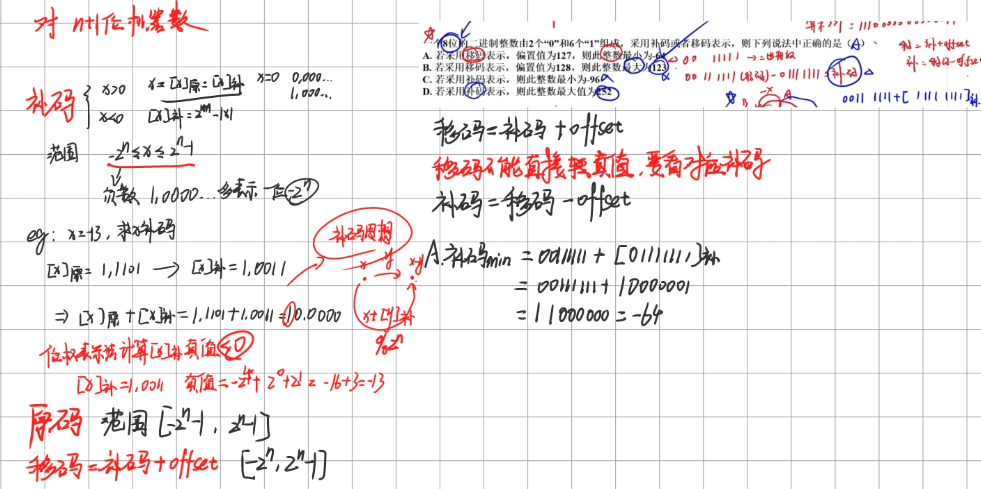 对 n+1位机器数
补码 { x>0 x=[x]原=[x]补 x=0 0,000...
1,000...
x<0 [x]补=2ⁿ⁺¹-|x|
范围 -2ⁿ≤x≤2ⁿ-1
负数 1,0000... 多表示一个-2ⁿ
eg: x=-13, 求x补码
[x]原=1,1101 → [x]补=1,0011
⇒ [x]原+[x]补=1,1101+1,0011=10,0000
补码思想
x -y x-y
x+[y]补
%2ⁿ
位权表示法计算[x]补真值≤0
[x]补=1,0011 真值=-2⁴+2⁰+2¹=-16+3=-13
原码 范围[-2ⁿ-1, 2ⁿ-1]
移码=补码+offset [-2ⁿ, 2ⁿ-1]
一个8位的二进制整数由2个“0”和6个“1”组成，采用补码或者移码表示，则下列说法中正确的是（A）
A. 若采用移码表示，偏置值为127，则此整数最小为-64
B. 若采用移码表示，偏置值为128，则此整数最大为123
C. 若采用补码表示，则此整数最小为-96
D. 若采用补码表示，则此整数最大值为252
移=补+offset
补=移-offset
00 11111
00 11 1111 (移码) - 0111 1111 = 补码
0011 1111+[ 1111 1111]补
移码=补码+offset
移码不能直接转真值，要看对应补码
补码=移码-offset
A. 补码min = 00111111 + [01111111]补
= 00111111 + 10000001
= 11000000 = -64